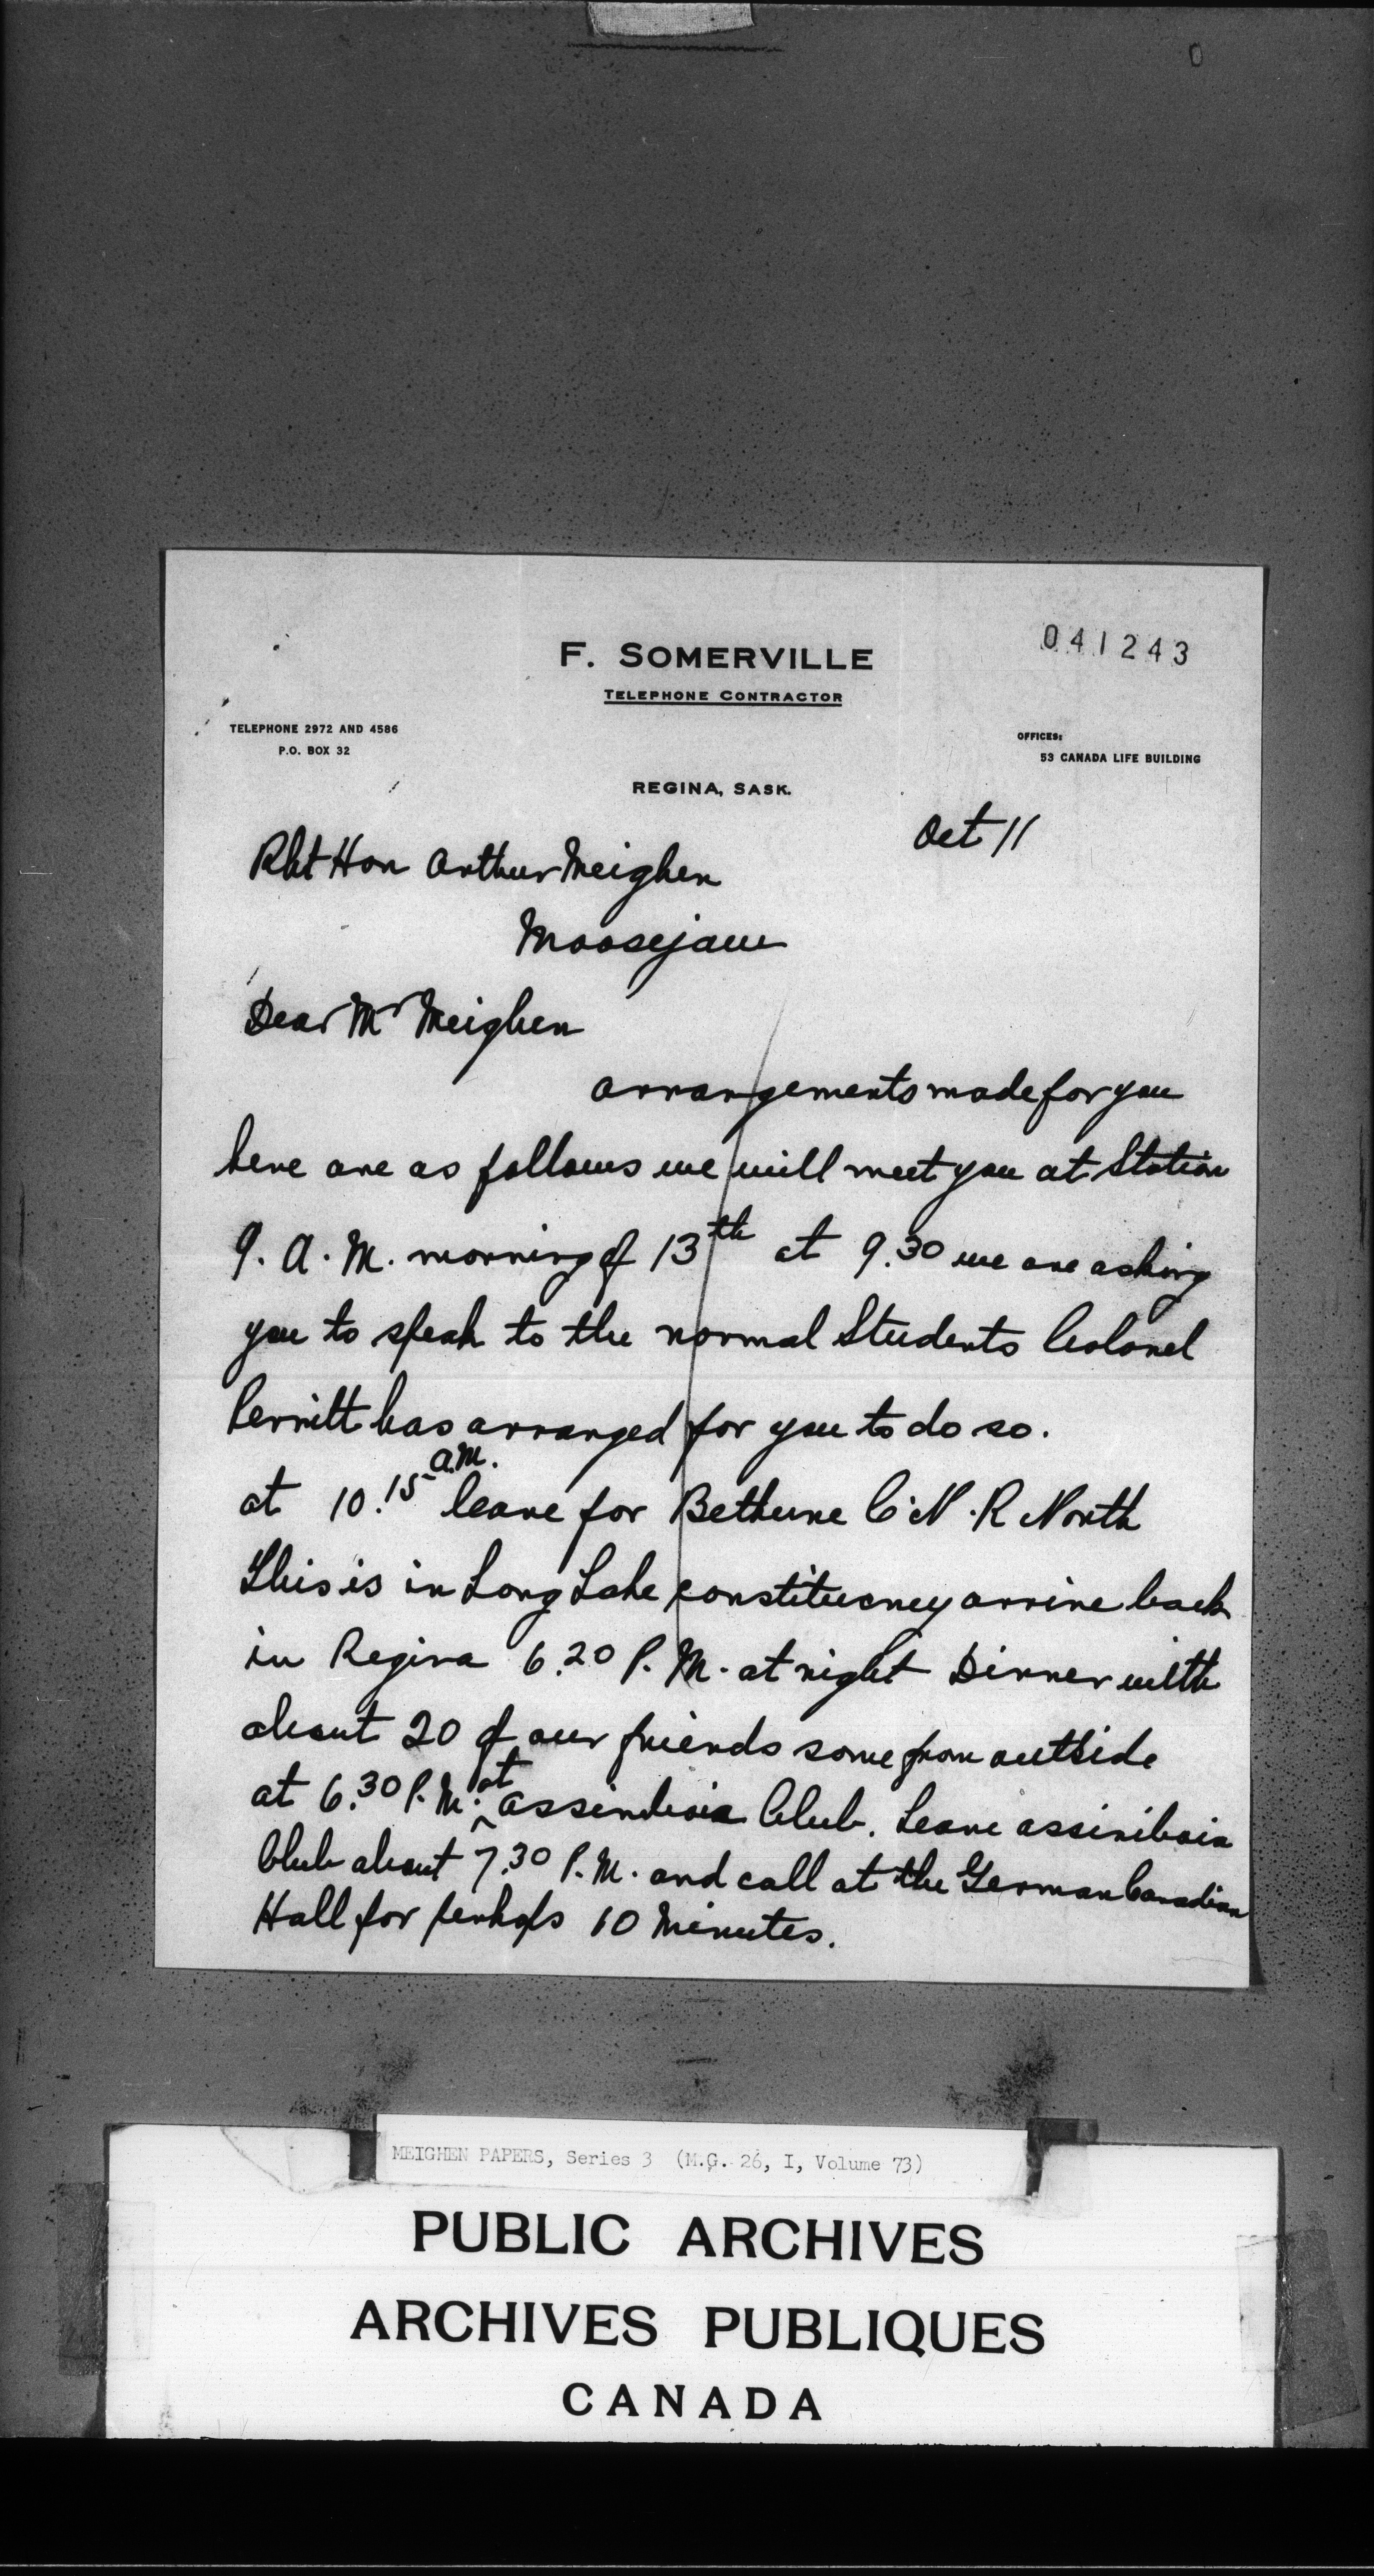 0
F. SOMERVILLE
TELEPHONE CONTRACTOR
041243
TELEPHONE 2972 AND 4586
P.O. BOX 32
OFFICES:
53 CANADA LIFE BUILDING
REGINA, SASK.
Oct 11
Rht Hon Arthur Meighen
Moosejaw
Dear Mr Meighen
arrangements made for you
here are as follows we will meet you at Station
9. A. M. morning of 13th at 9.30 we are asking
you to speak to the normal Students Colonel
has arranged for you to do so.
at 10.15 a.m. leave for Bethune C.N.R North
This is in Long Lake constituency arrive back
in Regina 6.20 P.M. at night Dinner with
about 20 of our friends some from outside
at 6.30 P.M. at assiniboia Club. Leave assiniboia
Club about 7.30 P.M. and call at the German Canadian
Hall for perhaps 10 Minutes.
MEIGHEN PAPERS, Series 3 (M.G. 26, I, Volume 73)
PUBLIC ARCHIVES
ARCHIVES PUBLIQUES
CANADA